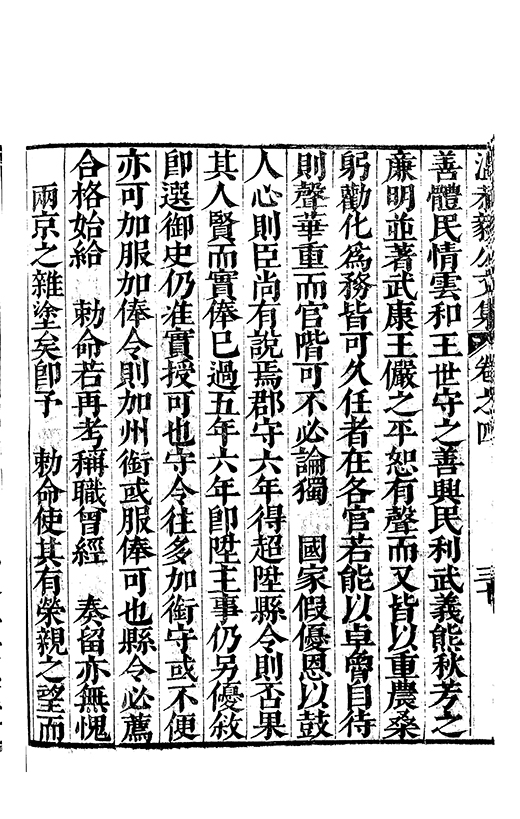 溫恭毅公文集 卷之四 三十
善體民情雲和王世守之善興民利武義熊秋芳之
廉明並著武康王儼之平恕有聲而又皆以重農桑
躬勸化爲務皆可久任者在各官若能以卓魯自待
則聲華重而官階可不必論獨 國家假優恩以鼓
人心則臣尚有說焉郡守六年得超陞縣令則否果
其人賢而實俸已過五年六年卽陞主事仍另優敘
卽選御史仍准實授可也守令往多加銜守或不便
亦可加服加俸令則加州銜或服俸可也縣令必薦
合格始給 勅命若再考稱職曾經 奏留亦無愧
兩京之雜塗矣卽予 勅命使其有榮親之望而